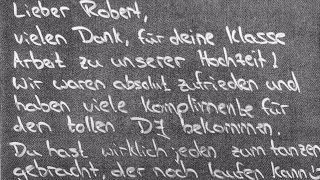 Lieber Robert,
vielen Dank, für deine Klasse
Arbeit zu unserer Hochzeit!
Wir waren absolut zufrieden und
haben viele Komplimente für
den tollen DJ bekommen.
Du hast wirklich jeden zum tanzen
gebracht, der noch laufen konnte